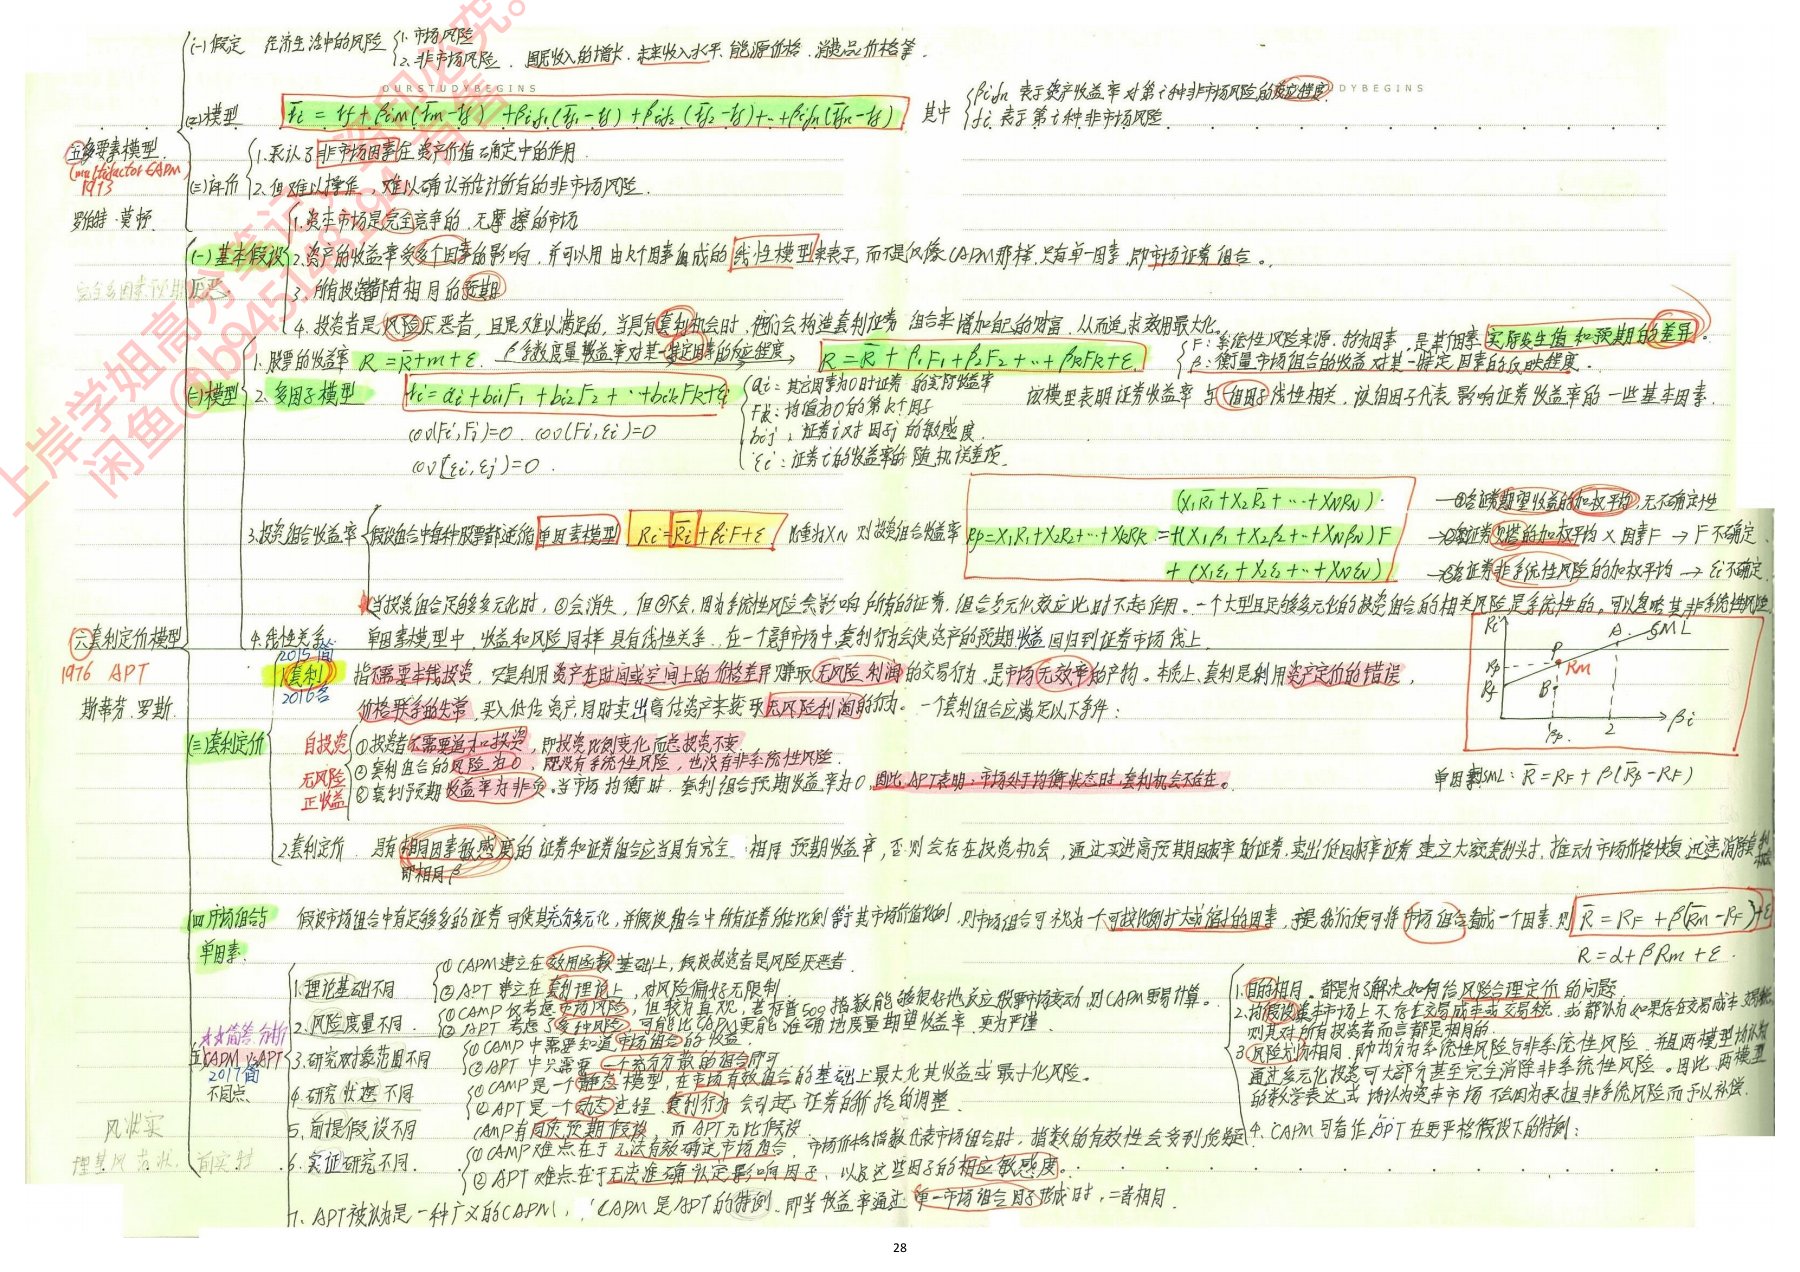 (一)假定 经济生活中的风险 1. 市场风险
2. 非市场风险. 国民收入的增长. 未来收入水平. 能源价格. 消费品价格等.
OURSTUDYBEGINS
DYBEGINS
(二)模型 r̄i = rf + βiM(r̄m-rf) + βif1(r̄f1-rf) + βif2(r̄f2-rf)+…+βifn(r̄fn-rf) 其中
βifn 表示资产收益率对第i种非市场风险的反应程度.
fi 表示第i种非市场风险
五多要素模型.
(multifactor CAPM)
1973
罗伯特·莫顿.
(三)评价
1. 承认了非市场因素在资产价值确定中的作用.
2. 但难以操作, 难以确认并估计所有的非市场风险.
(一)基本假设
1. 资本市场是完全竞争的, 无摩擦的市场
2. 资产的收益率受多个因素的影响, 并可以用由K个因素组成的线性模型来表示, 而不是仅像CAPM那样, 只有单一因素, 即市场证券组合.
3. 所有投资者都有相同的预期
4. 投资者是风险厌恶者, 且是难以满足的, 当具有套利机会时, 他们会构造套利证券组合来增加自己的财富, 从而追求效用最大化.
(二)模型
1. 股票的收益率 R = R̄+m+ε. β系数度量收益率对某一特定因素的反应程度 R = R̄ + β1F1+β2F2+…+βKFK+ε.
F: 系统性风险来源, 称为因素, 是某个因素实际发生值和预期的差异.
β: 衡量市场组合的收益对某一特定因素的反映程度.
2. 多因子模型 ri = ai + bi1F1 + bi2F2 + … + bikFk+εi
ai: 其它因素为0时证券i的实际收益率
Fk: 均值为0的第k个因子
bij: 证券i对因子j的敏感度.
εi: 证券i的收益率的随机误差项.
该模型表明证券收益率与一组因子线性相关, 该组因子代表影响证券收益率的一些基本因素.
cov(Fi,Fj)=0. cov(Fi,εi)=0
cov(εi,εj)=0.
3. 投资组合收益率 假设组合中每种股票都遵循单因素模型 Ri = R̄i+βiF+ε 比重为XN 则投资组合收益率
Rp=X1R1+X2R2+…+XRRR =
(X1R̄1+X2R̄2+…+XNRN) ①各证券期望收益的加权平均, 无不确定性
+(X1β1+X2β2+…+XNβN)F ②各证券贝塔的加权平均×因素F → F不确定.
+(X1ε1+X2ε2+…+XNεN) ③各证券非系统性风险的加权平均 → εi不确定.
当投资组合足够多元化时, ③会消失, 但②不会, 因为系统性风险会影响所有的证券, 组合多元化效应此时不起作用. 一个大型且足够多元化的投资组合的相关风险是系统性的, 可以忽略其非系统性风险
六套利定价模型
1976 APT
斯蒂芬.罗斯.
4. 线性关系 单因素模型中, 收益和风险同样具有线性关系. 在一个竞争市场中, 套利行为会使资产的预期收益回归到证券市场线上.
Ri
A
SML
P
Rm
Rp
RF
B
βp
2
βi
单因素SML: R̄ = RF + β(R̄p-RF)
(三)套利定价
2015简
1.套利
2016名
指不需要本钱投资, 只是利用资产在时间或空间上的价格差异赚取无风险利润的交易行为, 是市场无效率的产物. 本质上, 套利是利用资产定价的错误,
价格联系的失常, 买入低估资产, 同时卖出高估资产来获取无风险利润的行为. 一个套利组合应满足以下条件:
自投资 ①投资者不需要追加投资, 即投资比例变化, 而总投资不变.
无风险 ②套利组合的风险为0, 既没有系统性风险, 也没有非系统性风险.
正收益 ③套利预期收益率为非负. 当市场均衡时, 套利组合预期收益率为0. 因此APT表明, 市场处于均衡状态时, 套利机会不存在.
2. 套利定价 具有相同因素敏感度的证券和证券组合应当具有完全相同预期收益率, 否则会存在投资机会, 通过买进高预期回报率的证券, 卖出低回报率证券, 建立大额套利头寸, 推动市场价格恢复, 迅速消除套利机会
即相同β
(四)市场组合与
单因素.
假设市场组合中有足够多的证券可使其充分多元化, 并假设组合中所有证券所占比例等于其市场价值比例, 则市场组合可视为一个可按比例扩大或缩小的因素, 于是我们便可将市场组合看成一个因素, 则 R̄ = RF + β(R̄m-RF)+ε
R = α+βRm+ε.
简答. 分析
五CAPM vs APT
2017简
不同点
1. 理论基础不同
①CAPM建立在效用函数基础上, 假设投资者是风险厌恶者.
②APT 建立在套利理论上, 对风险偏好无限制
2. 风险度量不同.
①CAPM仅考虑市场风险, 但较为直观, 若标普500指数能够很好地反应股票市场变动, 则CAPM更易计算.
②APT 考虑了多种风险, 可能比CAPM更能准确地度量期望收益率, 更为严谨.
3. 研究对象范围不同
①CAMP中需要知道市场组合的收益.
②APT中只需要一个充分分散的组合即可
4. 研究状态不同
①CAMP是一个静态模型, 在市场有效组合的基础上最大化其收益或最小化风险.
②APT是一个动态过程, 套利行为会引起证券的价格的调整.
5. 前提假设不同 CAMP有同质预期假设, 而APT无此假设.
6. 实证研究不同.
①CAMP难点在于无法有效确定市场组合, 市场价格指数代表市场组合时, 指数的有效性会受到质疑
②APT难点在于无法准确认定影响因子, 以及这些因子的相应敏感度.
7. APT被认为是一种广义的CAPM, CAPM是APT的特例. 即当收益率通过单一市场组合因子形成时, 二者相同.
1. 目的相同. 都是为了解决如何给风险合理定价的问题.
2. 均假设资本市场上不存在交易成本或交易税, 或都认为如果存在交易成本、税,
则其对所有投资者而言都是相同的.
3. 风险划分相同, 即均分为系统性风险与非系统性风险, 并且两模型均认为
通过多元化投资可大部分甚至完全消除非系统性风险. 因此, 两模型
的数学表达式均认为资本市场不会因为承担非系统风险而予以补偿.
4. CAPM可看作APT在更严格假设下的特例:
上岸学姐高分笔记
闲鱼@b94514819
28